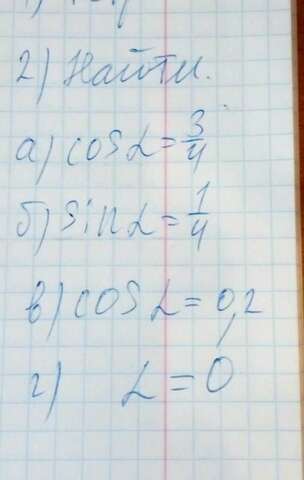 2) Найти.
а) cosα = 3/4
б) sinα = 1/4
в) cosα = 0,2
г) α = 0